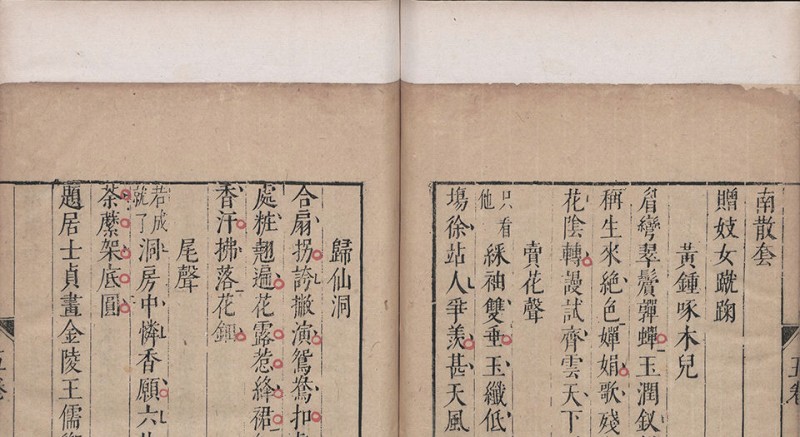 南散套
贈妓女蹴踘
黃鍾啄木兒
眉彎翠鬢嚲蟬玉潤釵
稱生來絶色嬋娟歌殘
花陰轉謾試齊雲天下
賣花聲
只看他綵袖雙垂玉纖低
塲徐站人爭羨甚天風
歸仙洞
合扇拐誇撇演鴛鴦扣
處粧翹遍花露惹絳裙
香汗拂落花鈿
尾聲
若成就了洞房中憐香願六
荼䕷架底圓
題居士貞畫金陵王儒
五卷
五卷